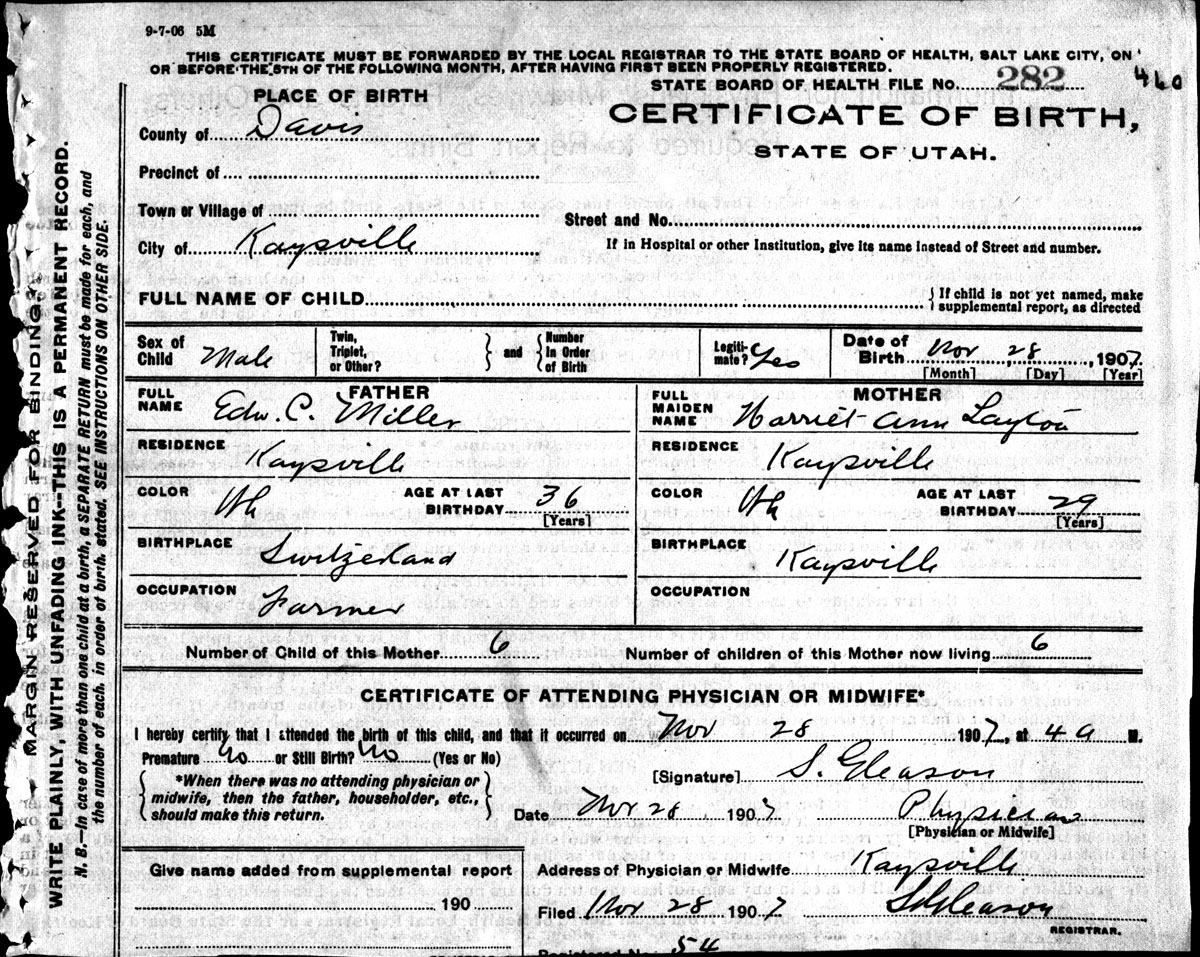 9-7-06 5M
THIS CERTIFICATE MUST BE FORWARDED BY THE LOCAL REGISTRAR TO THE STATE BOARD OF HEALTH, SALT LAKE CITY, ON
OR BEFORE THE 5TH OF THE FOLLOWING MONTH, AFTER HAVING FIRST BEEN PROPERLY REGISTERED.
STATE BOARD OF HEALTH FILE NO. 282 460
PLACE OF BIRTH
CERTIFICATE OF BIRTH,
STATE OF UTAH.
County of Davis
Precinct of
Town or Village of
Street and No.
City of Kaysville
If in Hospital or other Institution, give its name instead of Street and number.
FULL NAME OF CHILD
If child is not yet named, make
supplemental report, as directed
Sex of Child Male
Twin, Triplet, or Other? and Number In Order of Birth
Legitimate? Yes
Date of Birth Nov 28, 1907
[Month] [Day] [Year]
FATHER
FULL NAME Edw. C. Miller
MOTHER
FULL MAIDEN NAME Harriet Ann Layton
RESIDENCE Kaysville
RESIDENCE Kaysville
COLOR Wh AGE AT LAST BIRTHDAY 36 [Years]
COLOR Wh AGE AT LAST BIRTHDAY 29 [Years]
BIRTHPLACE Switzerland
BIRTHPLACE Kaysville
OCCUPATION Farmer
OCCUPATION
Number of Child of this Mother 6 Number of children of this Mother now living 6
CERTIFICATE OF ATTENDING PHYSICIAN OR MIDWIFE*
I hereby certify that I attended the birth of this child, and that it occurred on Nov 28 1907, at 4 a M.
Premature No or Still Birth? No (Yes or No)
*When there was no attending physician or
midwife, then the father, householder, etc.,
should make this return.
[Signature] S. Gleason
Date Nov 28 1907 Physician
[Physician or Midwife]
Give name added from supplemental report
190
Address of Physician or Midwife Kaysville
Filed Nov 28 1907 S Gleason
REGISTRAR.
Registered No. 54
MARGIN RESERVED FOR BINDING
WRITE PLAINLY, WITH UNFADING INK--THIS IS A PERMANENT RECORD.
N. B.--In case of more than one child at a birth, a SEPARATE RETURN must be made for each, and
the number of each, in order of birth, stated. SEE INSTRUCTIONS ON OTHER SIDE.